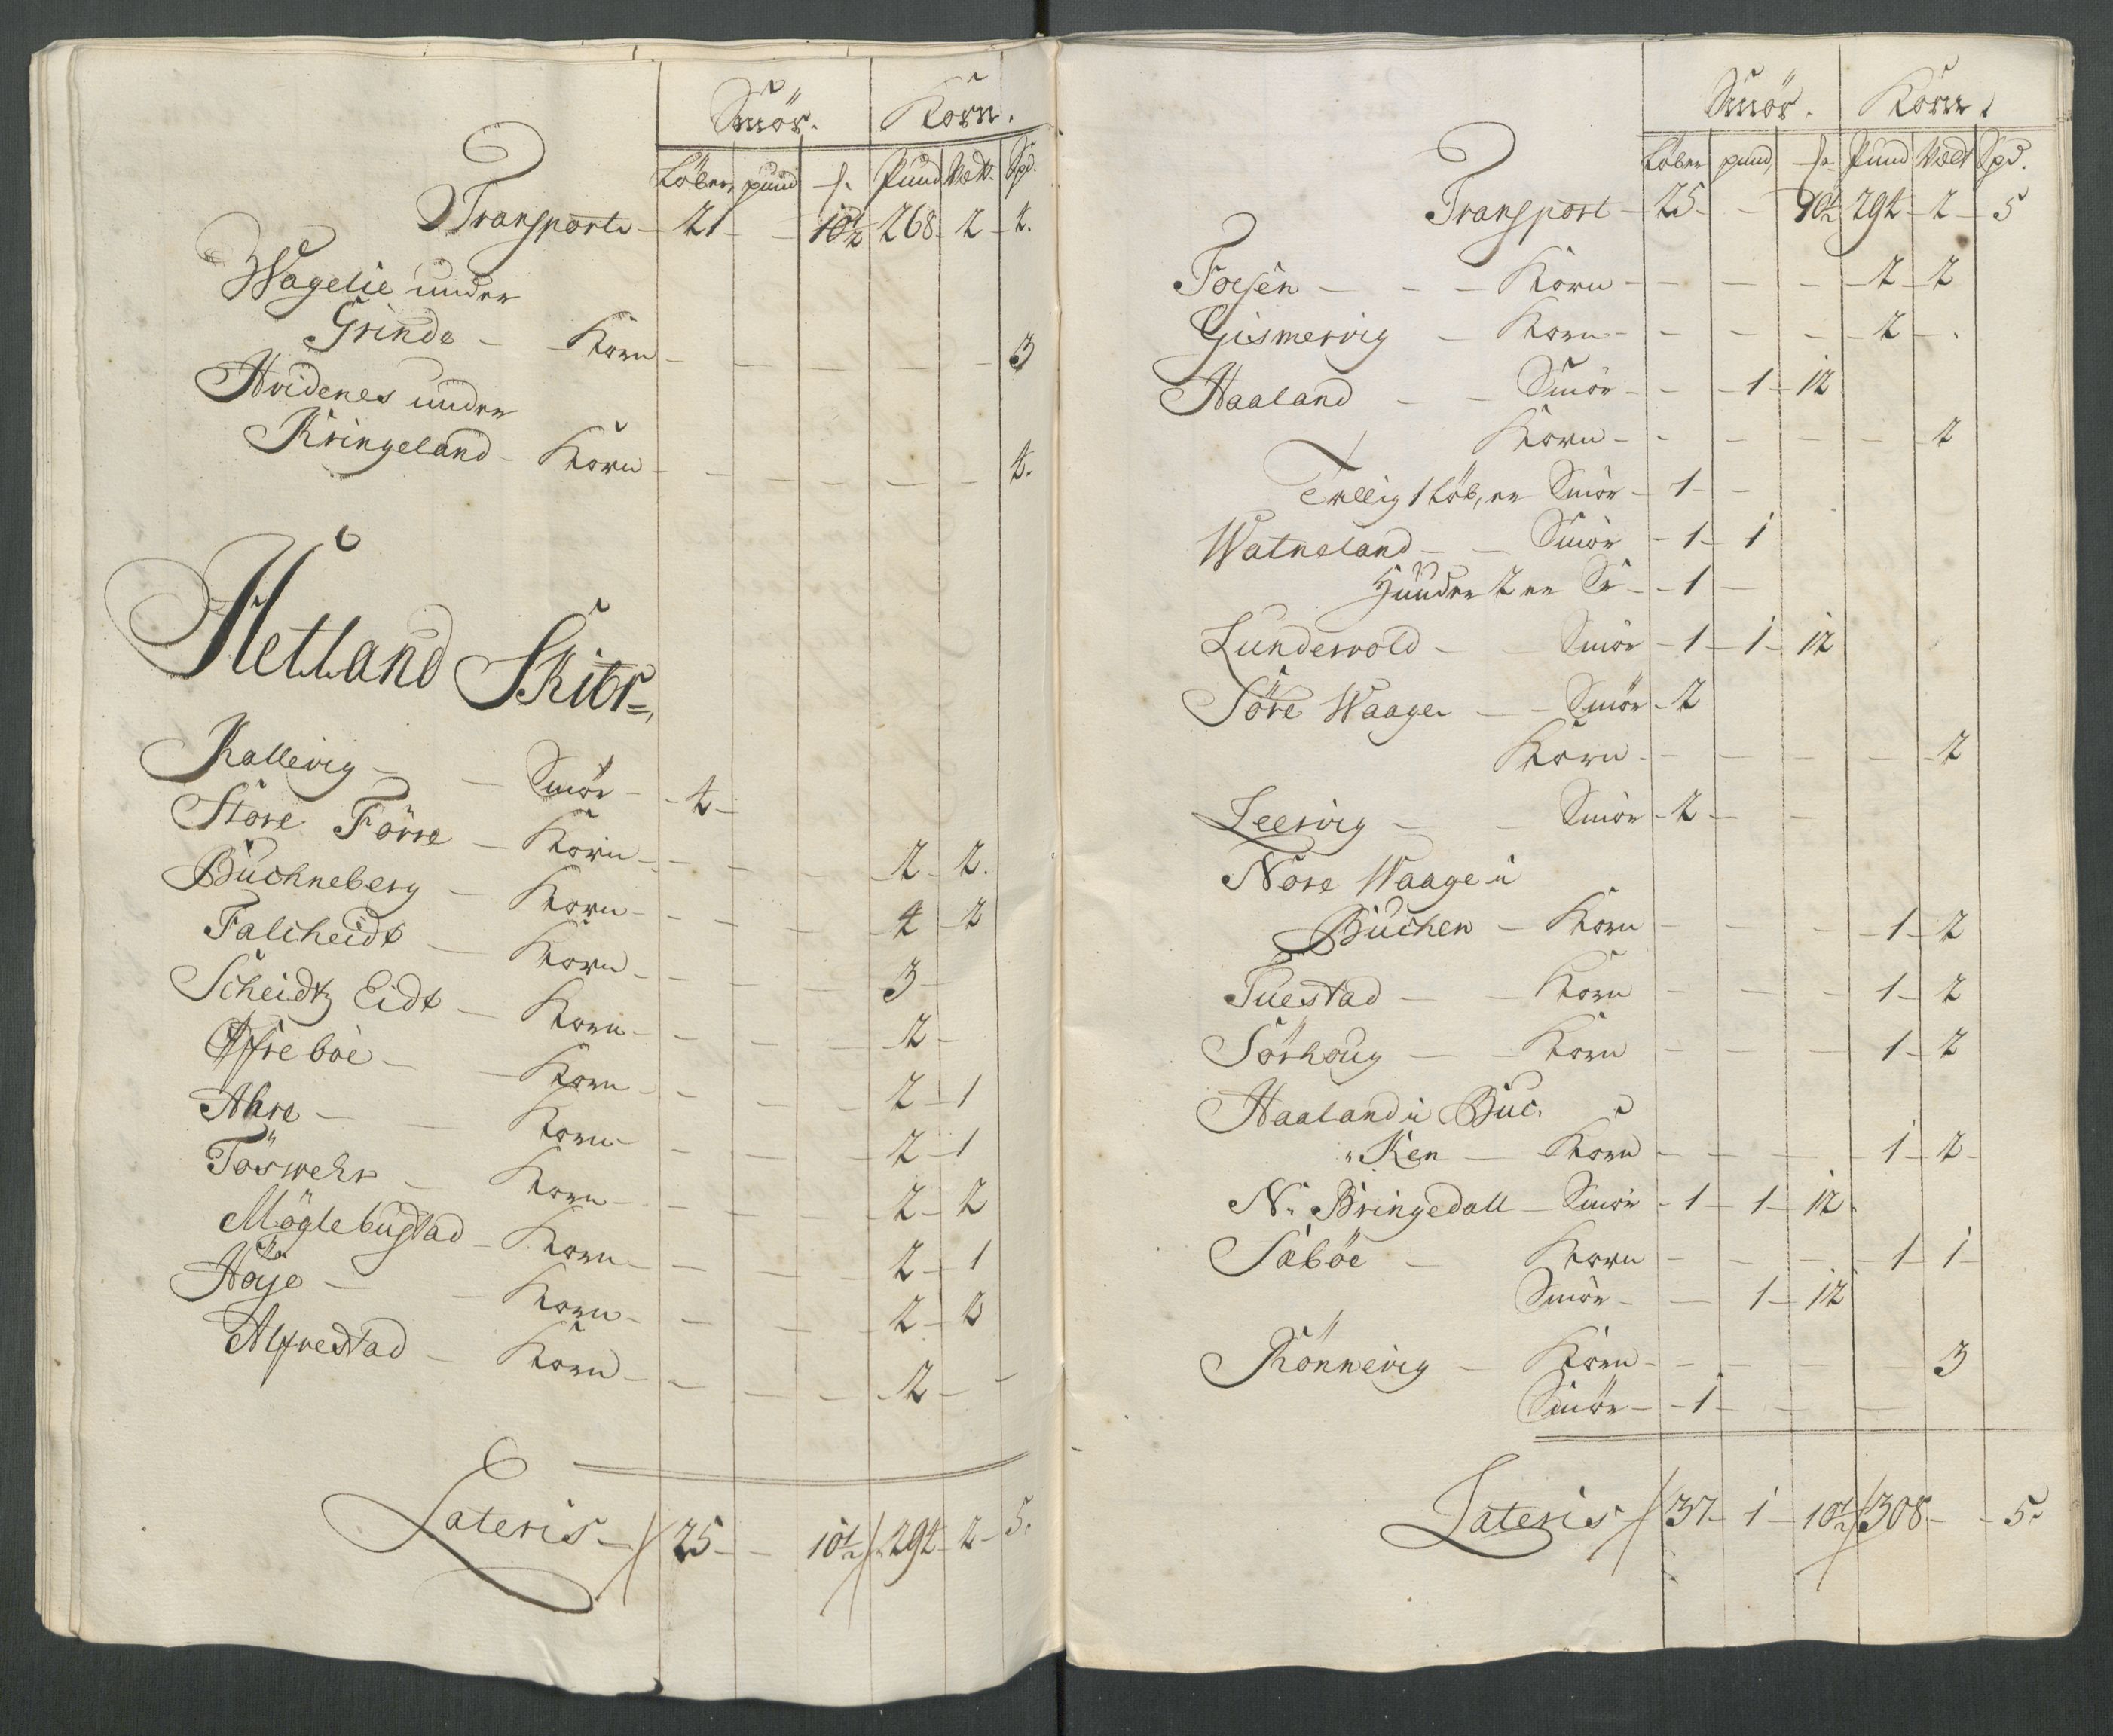 Smör. Korn.
Löber, pund f. Pund Vett. Spd.
Transport 21 - 10½ 268 2 2.
Wagelie under
Grinde - Korn - - - - - 3
Hvidenes under
Kringeland - Korn - - - - - 2.
Hetland Skibr,
Kallevig - - Smör - 4 -
Store Förre - Korn - - - 2 2.
Buchneberg - Korn - - - 4 2
Falcheidt - Korn - - - 3 -
Scheidtz Eidt - Korn - - - 2 -
Öfre böe - - Korn - - - 2 1
Ahre - - Korn - - - 2 1
Töswehr - Korn - - - 2 2
Möglebustad - Korn - - - 2 1
Höje - - Korn - - - 2 2
Alfrestad - Korn - - - 2 - -
Lateris - 25 - 10½ 294 2 5.
Smör. Korn.
Löber pund f. Pund Vett Spd.
Transport - 25 - 10½ 294 2 5
Fosen - - - Korn - - - 2 2
Gismervig - Korn - - - 2 - .
Haaland - - Smör - - 1 12
Korn - - - - - 2
Tellig 1 Löb, er Smör - 1 -
Watneland - - Smör - 1 1
Hundre 2 er Sr - 1 -
Lundevold - - Smör - 1 1 12
Söre Waage - - Smör - 2
Korn - - - - 2
Leervig - - Smör - 2 - -
Nore Waage i
Buchen - Korn - - - 1 2
Tuestad - - Korn - - - 1 2
Sörhoug - - Korn - - - 1 2
Haaland i Buc.
"Ken - Korn - - - 1 2 -
N. Bringedall - Smör - 1 1 12.
Säböe - Korn - - - 1 1 -
Smör - - 1 12
Rönnevig - Korn - - - - 3
Smör - 1 - - -
Lateris - 37 1 10½ 308 - 5.